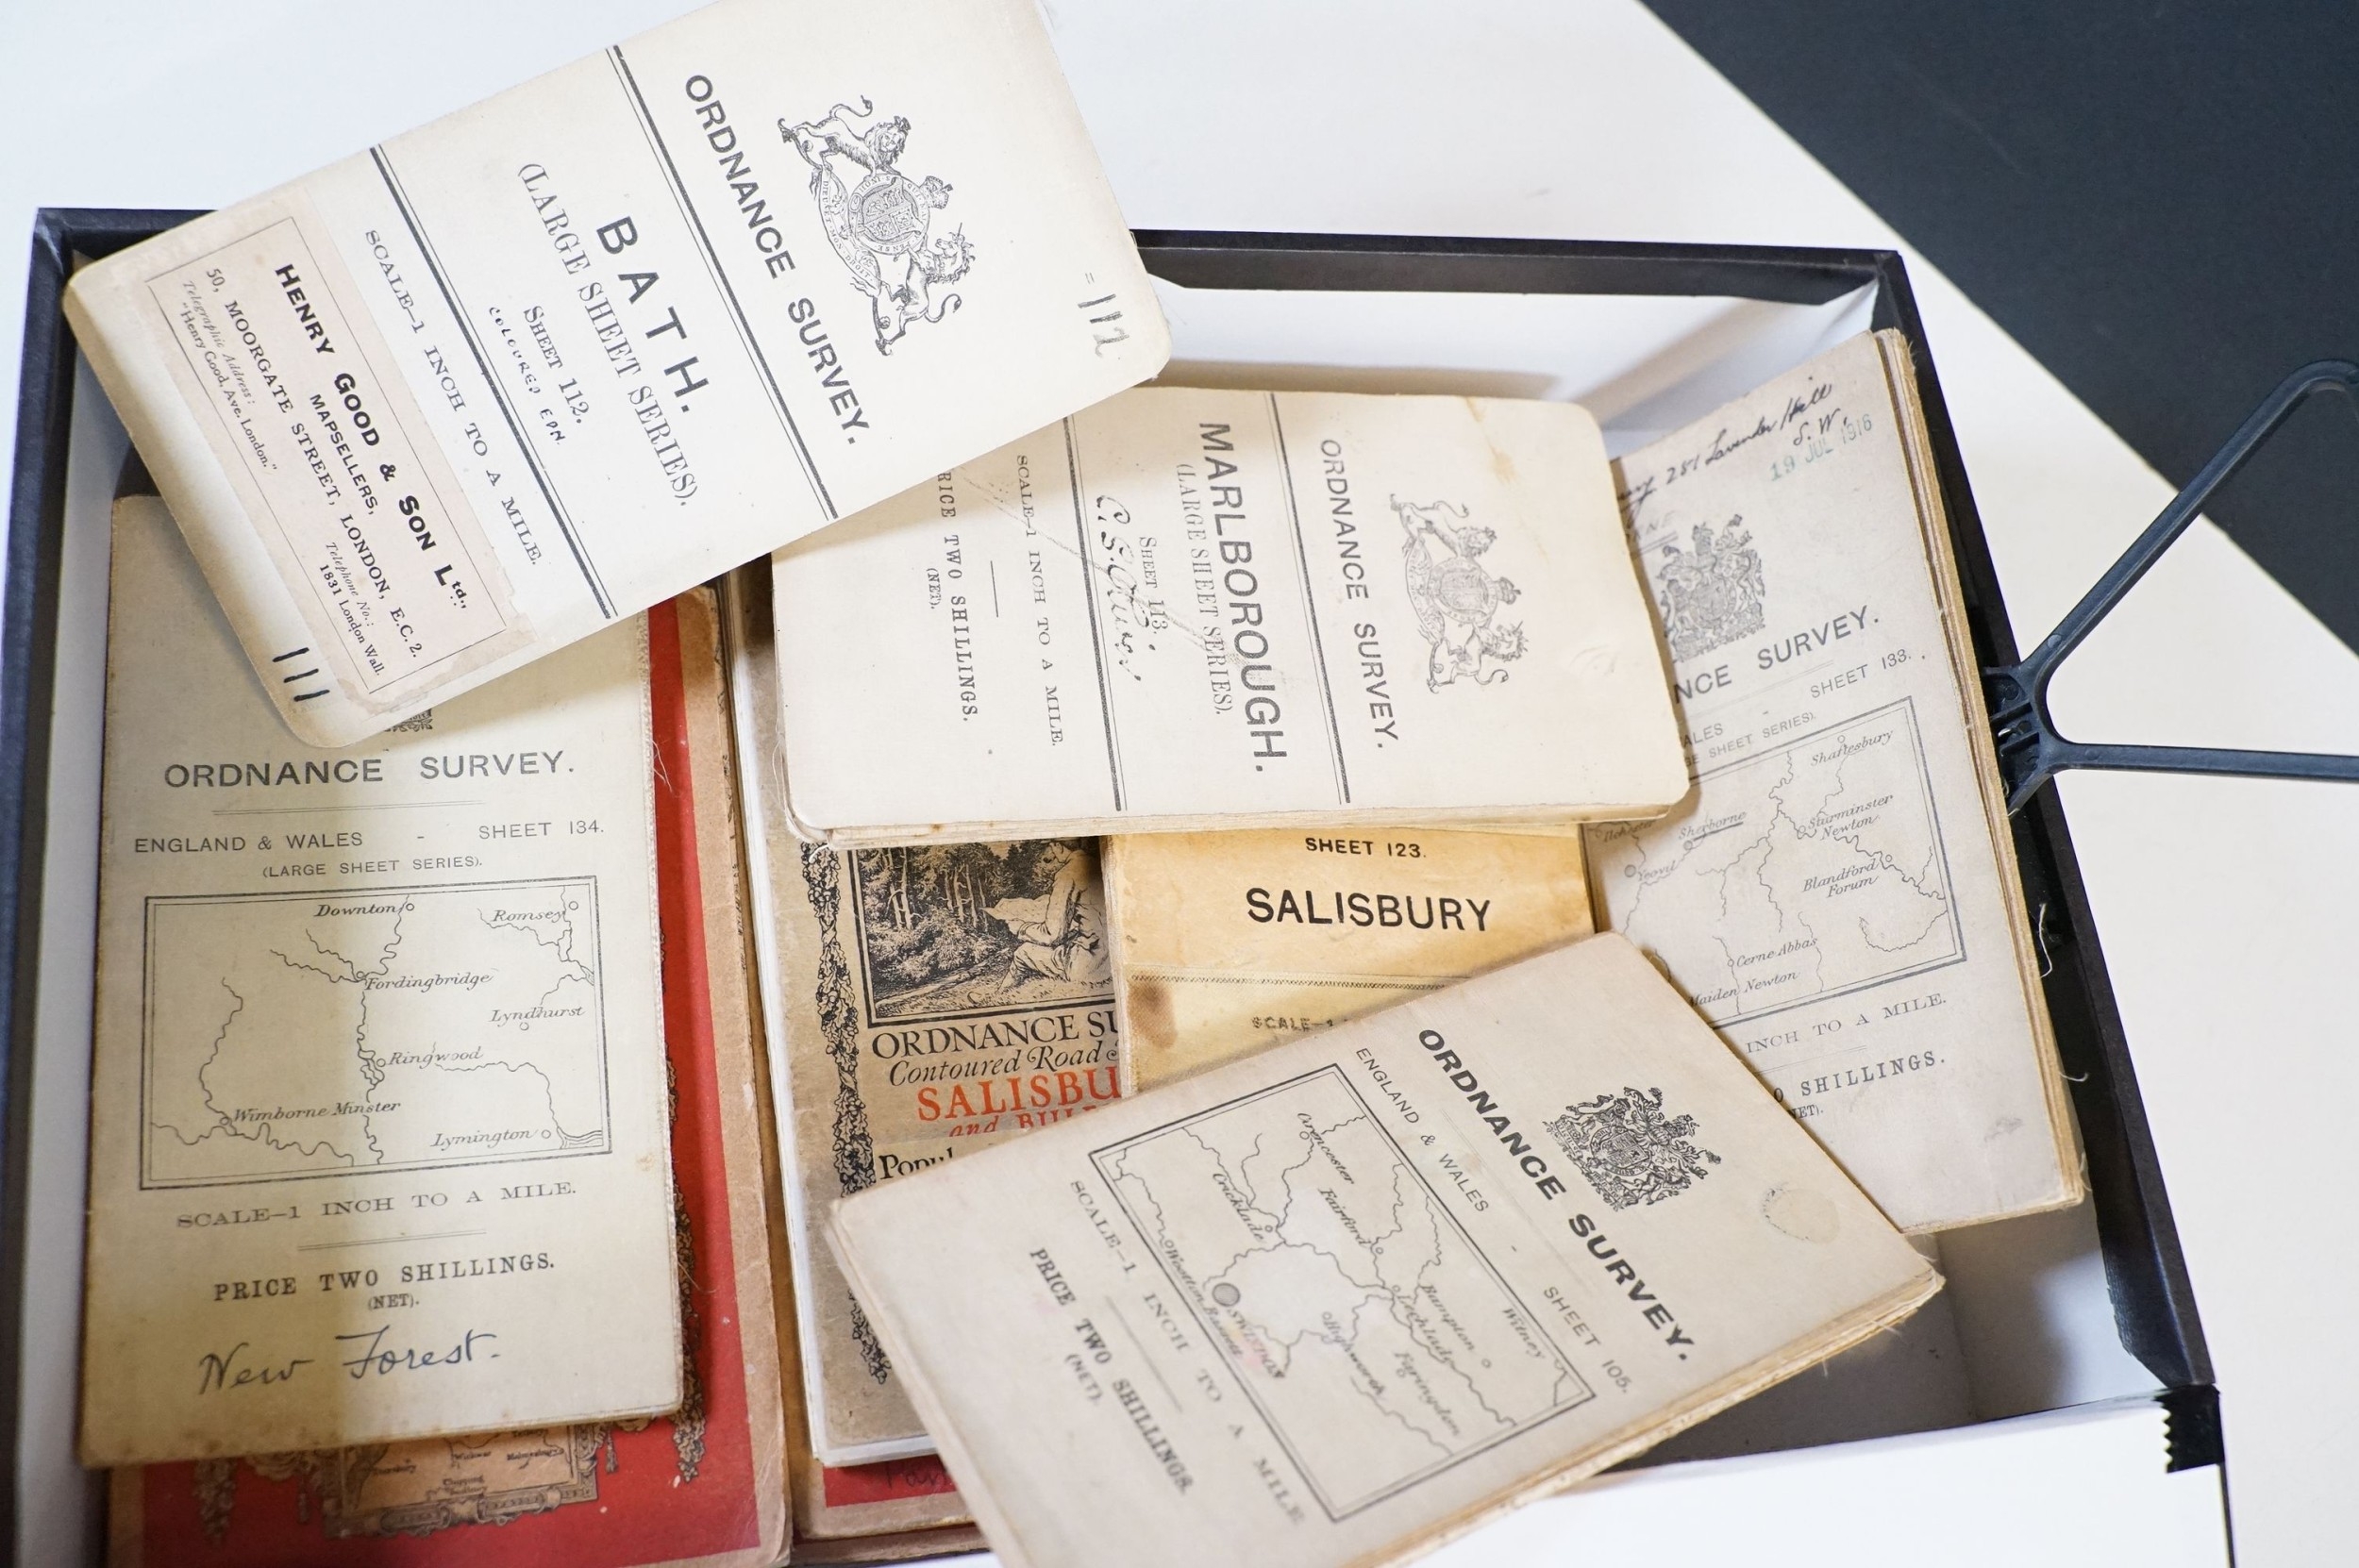 =112
ORDNANCE SURVEY.
BATH.
(LARGE SHEET SERIES).
SHEET 112.
COLOURED EDN.
SCALE–1 INCH TO A MILE.
HENRY GOOD & SON Ltd.,
MAPSELLERS,
50, MOORGATE STREET, LONDON, E.C. 2.
Telegraphic Address:
"Henry Good, Ave, London."
Telephone No.:
1831 London Wall.
111
ORDNANCE SURVEY.
MARLBOROUGH.
(LARGE SHEET SERIES).
SHEET 113.
SCALE–1 INCH TO A MILE.
RICE TWO SHILLINGS.
(NET).
287 Lavender Hill
S.W.
19 JUL 1916
NCE SURVEY.
ALES - SHEET 133.
SHEET SERIES).
Shaftesbury
Sherborne
Sturminster
Newton
Yeovil
Blandford
Forum
Cerne Abbas
Maiden Newton
INCH TO A MILE.
O SHILLINGS.
ORDNANCE SURVEY.
ENGLAND & WALES - SHEET 134.
(LARGE SHEET SERIES).
Downton
Romsey
Fordingbridge
Lyndhurst
Ringwood
Wimborne Minster
Lymington
SCALE–1 INCH TO A MILE.
PRICE TWO SHILLINGS.
(NET).
New Forest.
SHEET 123.
SALISBURY
SCALE–1
ORDNANCE SU
Contoured Road
SALISBU
and BUL
Popul
ORDNANCE SURVEY.
ENGLAND & WALES - SHEET 105.
Cirencester
Fairford
Cricklade
Bampton
Witney
Lechlade
Wootton Bassett
SWINDON
Highworth
Faringdon
SCALE–1 INCH TO A MILE.
PRICE TWO SHILLINGS.
(NET).